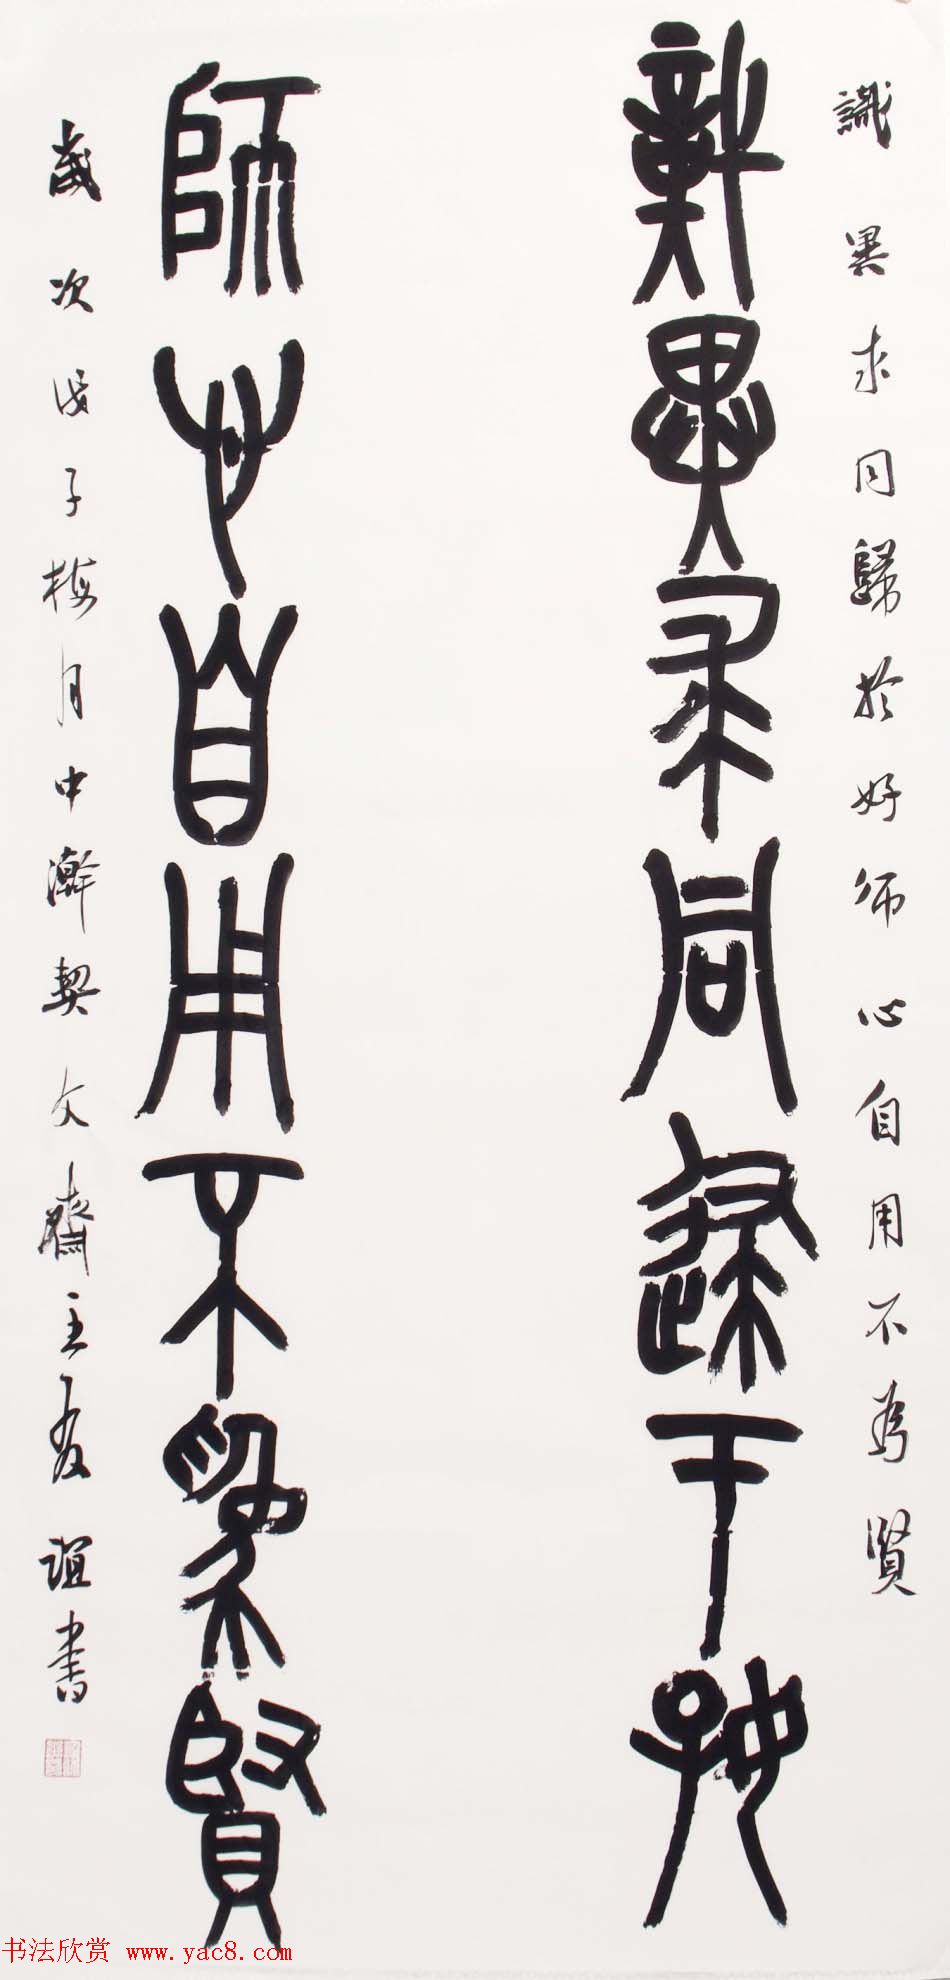 識異求同歸於好師心自用不為賢
識異求同歸于好
師心自用不為賢
歲次戊子梅月中澣契文齋主友誼書
书法欣赏 www.yac8.com